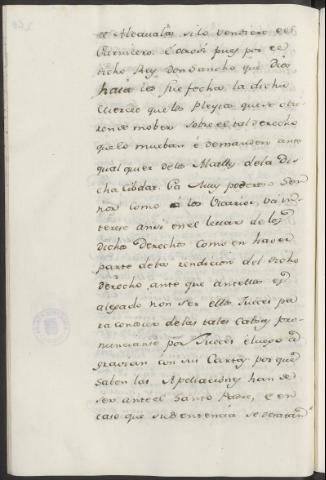 el Alcavala, si lo vendiere el
Carnicero. E otrosi pues por el
dicho Rey Don Sancho que Dios
haia les fue fecha la dicha
merced que los Pleytos que se obie-
ren de mober sobre el tal derecho
que lo muevan e demanden ante
qualquier de los Alcalls. de la Di-
cha Cibdat. Ca Muy poderoso Sen-
nor como los Vicarios, va in-
terese ansi en el levar de los
dichos Derechos como en haver
parte de la rendicion del dicho
derecho, ante que antellos es
alegado non ser ellos Jueces pa
ra conocer de las tales Cabsas pro-
nuncianse por Jueces e luego a
gravian con sus Cartas porque
saben las Apelaciones han de
ser ante el Santo Padre, e en
caso que su Sentencia se